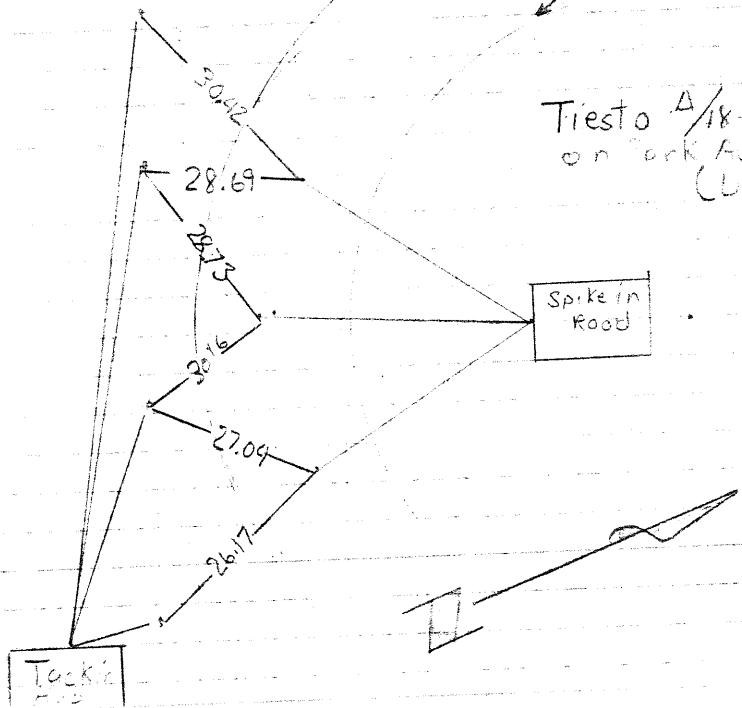 30.42
Ties to Δ/18-
on
28.69
28.73
Spike in
Road
30.16
27.09
26.17
Tack in